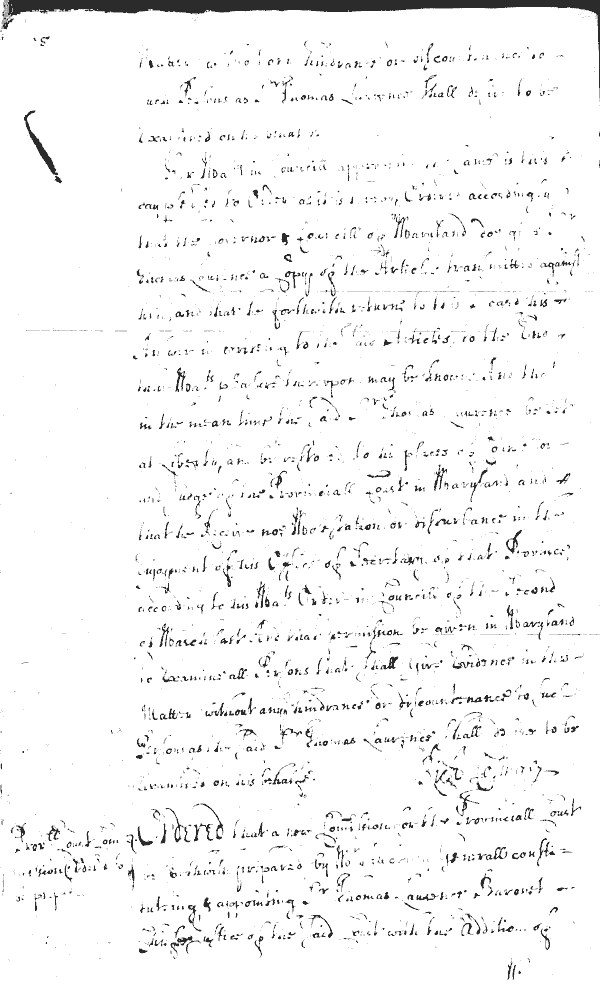 Matter without any hindrance or discountenance to
such Persons as Sr Thomas Laurence shall desire to be
Examined on his behalfe.
His Maty in Councill approving
to Order as it is hereby Ordered accordingly
that the Governor & Councill of Maryland doe give Sr
Thomas Laurence a Copy of the Articles transmitted against
him, and that he forthwith returne to this Board his
Answer in writing to the said Articles, to the End
his Maty's pleasure thereupon may be knowne And that
in the mean time the said Sr Thomas Laurence be set
at Liberty, and be restored to his places of Councellor
and Judge of the Provinciall Court in Maryland and
that he Receive noe Molestation or disturbance in the
Enjoyment of his Office of Secretary of that Province
according to his Matys Order in Councill of the Second
of March last And that permission be given in Maryland
to Examine all Persons that shall Give Evidence in this
Matter without any hindrance or discountenance to such
Persons as the said Sr Thomas Laurence shall desire to be
Examined on his behalfe.
Provll Court
Ordered that a new Commission for the Provinciall Court
be forthwith prepared by Generall consti=
tuting & appointing Sr Thomas Laurence Baronet
Justice of the said Court with the Addition of